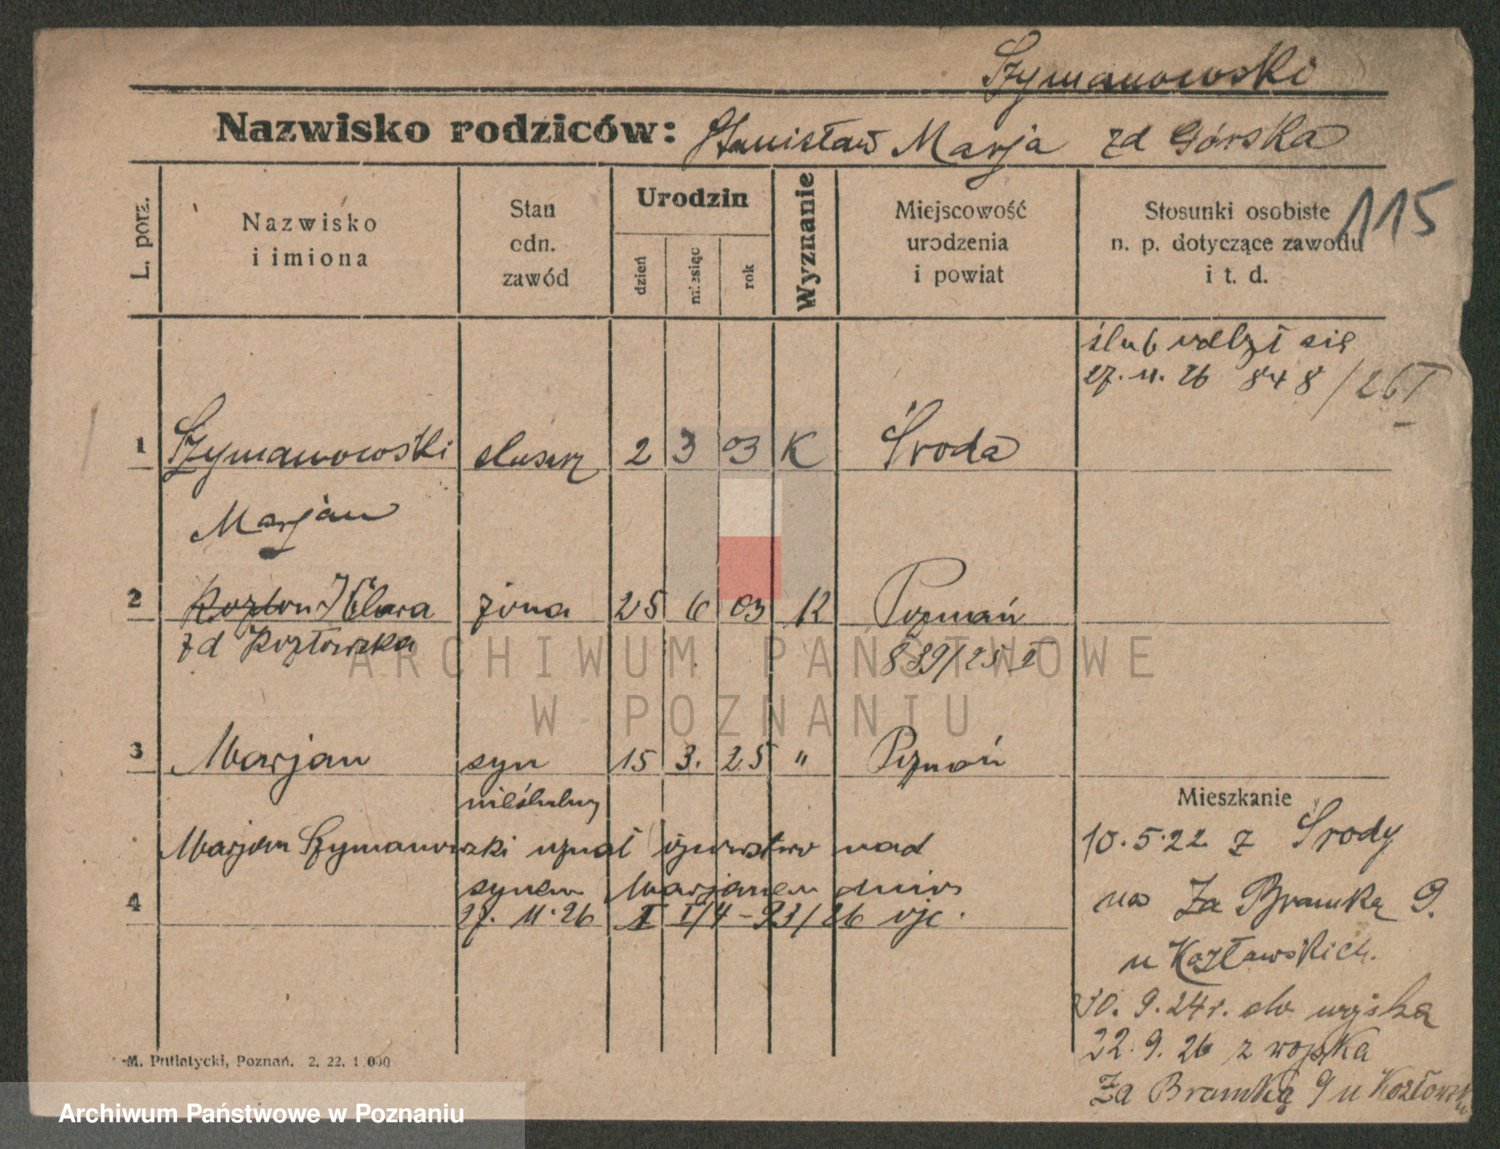 Szymanowski
Nazwisko rodziców: Stanisław Marja zd Górska
115
L. porz.
Nazwisko
i imiona
Stan
odn.
zawód
Urodzin
dzień
miesięc
rok
Wyznanie
Miejscowość
urodzenia
i powiat
Stosunki osobiste
n. p. dotyczące zawodu
i t. d.
ślub odbył się
27. 11. 26 848/26 I
1 Szymanowski ślusarz 2 3 03 K Środa
Marjan
2 Klara żona 25 6 03 K Poznań
zd Kozłowska 889/25 I
3 Marjan syn 15 3. 25 " Poznań
nieślubny
Marjan Szymanowski uznał ojcowstwo nad
synem Marjanem dnia
4 27. 11. 26 I I/4-93/26 ojc.
Mieszkanie
10. 5. 22 z Środy
na Za Bramką 9.
u Kozławskich.
30. 9. 24 r. do wojska
22. 9. 26 z wojska
Za Bramką 9 u Kozłowsk
M. Putiatycki, Poznań. 2. 22. 1 000
ARCHIWUM PAŃSTWOWE
W POZNANIU
Archiwum Państwowe w Poznaniu